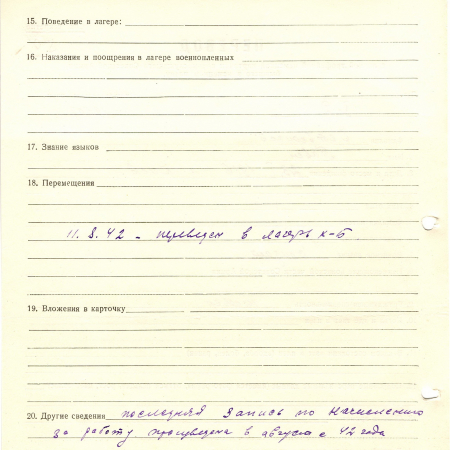 15. Поведение в лагере:
16. Наказания и поощрения в лагере военнопленных
17. Знание языков
18. Перемещения
11. 8. 42 - переведен в лагерь К-Б
19. Вложения в карточку
20. Другие сведения последняя запись по начислению
за работу произведена в августе 42 года